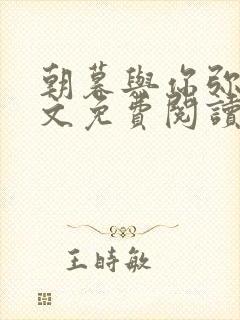 朝暮與你弥
文免費閱讀
王時敏